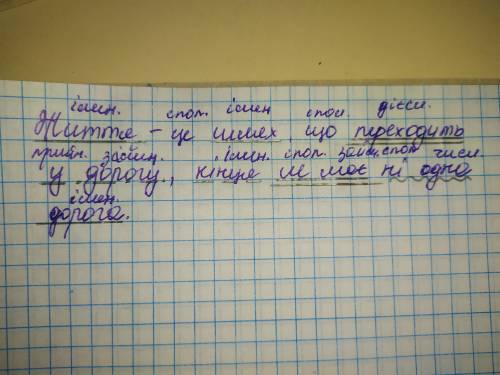 імен. спол. імен спол. дієсл.
Життя – це шлях, що переходить
прийм. займ. імен. спол. займ. спол числ.
у дорогу, кінця не має ні одна
імен.
дорога.